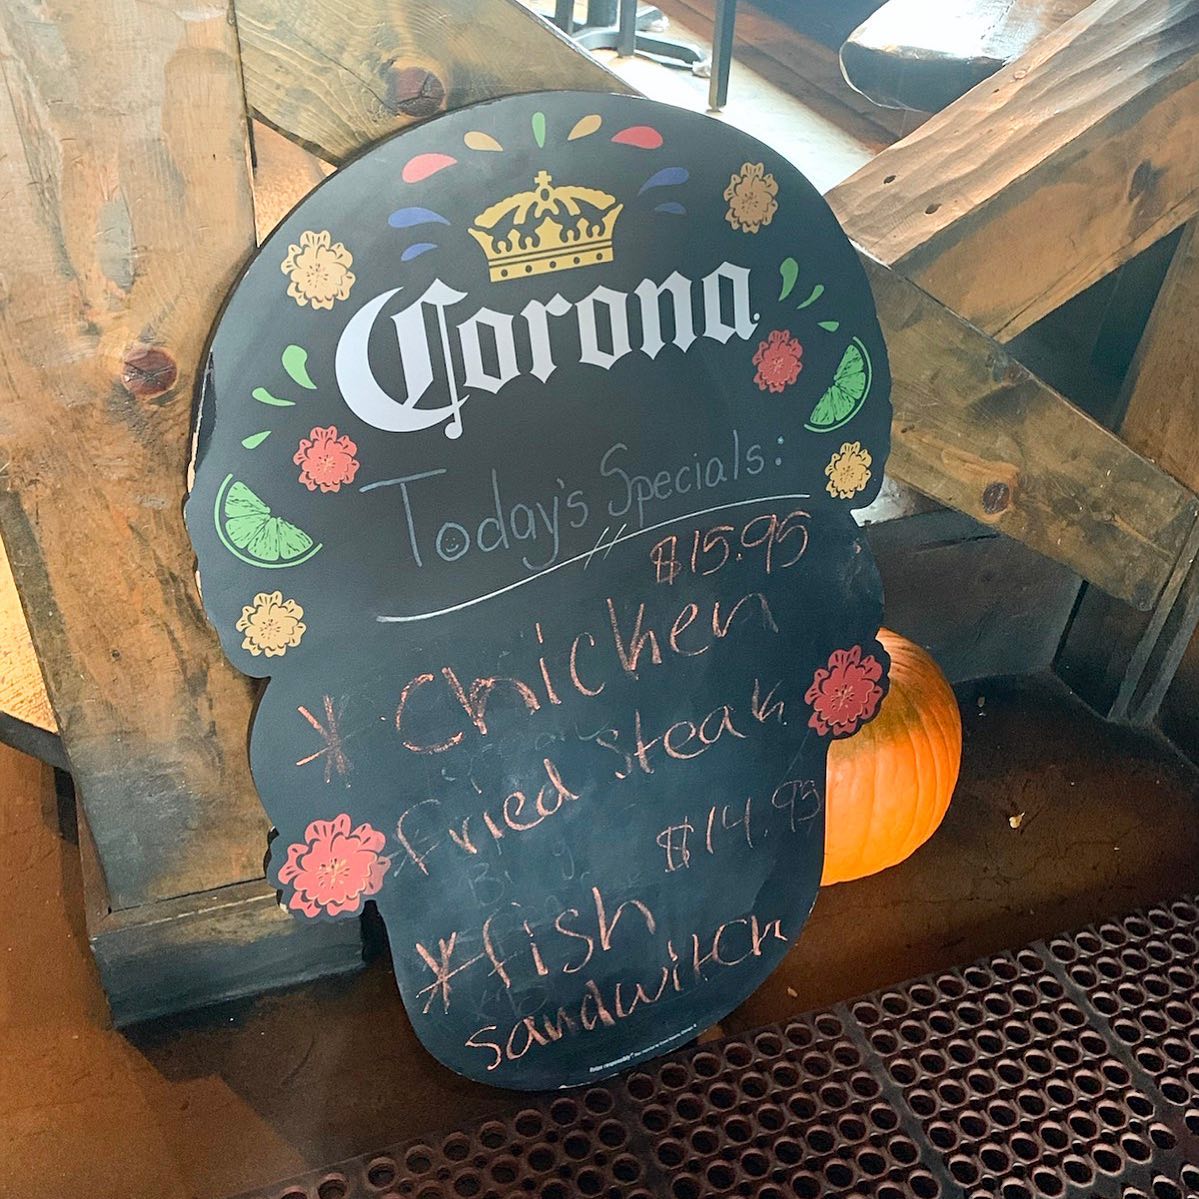 Corona
Today's Specials:
$15.95
* Chicken
fried steak
$14.95
* fish
sandwitch
Relax responsibly®